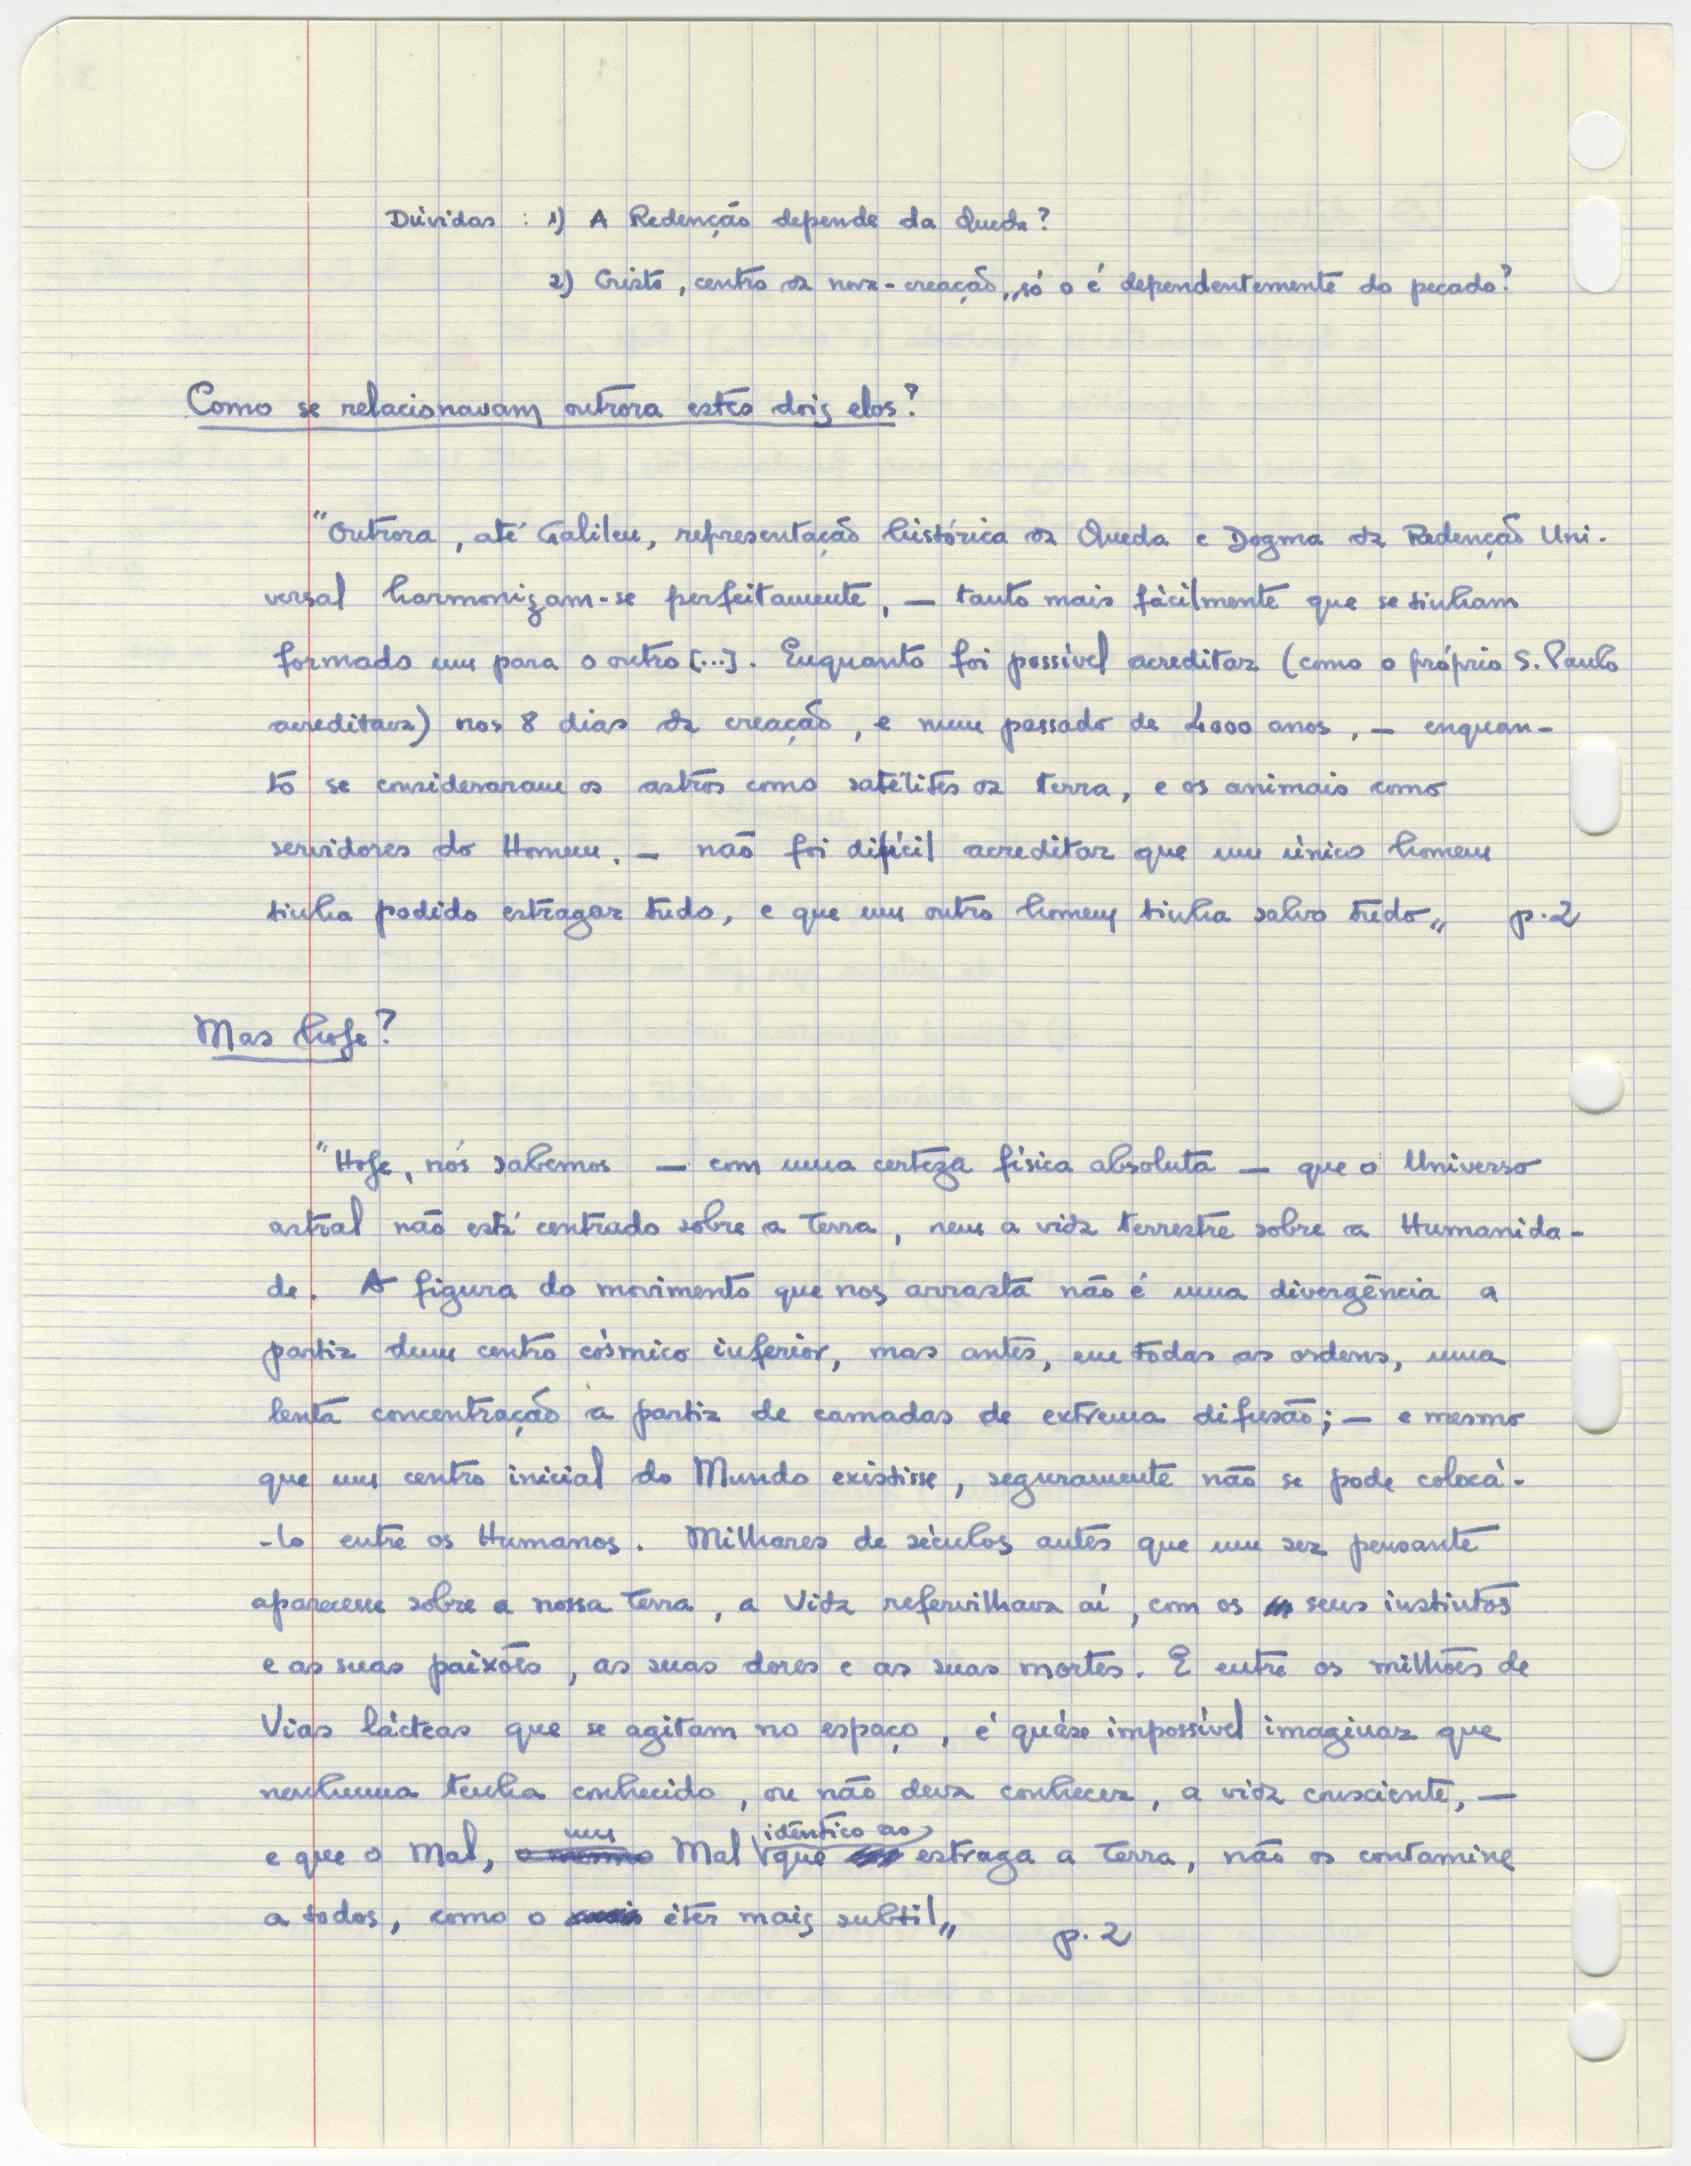 Dúvidas : 1) A Redenção depende da Queda?
2) Cristo, centro da nova-creação, só o é dependentemente do pecado?
Como se relacionavam outrora estes dois elos?
"Outrora, até Galileu, representação histórica da Queda e Dogma da Redenção Uni-
versal harmonizam-se perfeitamente, — tanto mais fàcilmente que se tinham
formado um para o outro [...]. Enquanto foi possível acreditar (como o próprio S. Paulo
acreditava) nos 8 dias da creação, e num passado de 4000 anos, — enquan-
to se consideraram os astros como satélites da terra, e os animais como
servidores do Homem. — não foi difícil acreditar que um único homem
tinha podido estragar tudo, e que um outro homem tinha salvo tudo„ p. 2
Mas hoje?
"Hoje, nós sabemos — com uma certeza física absoluta — que o Universo
astral não está centrado sobre a Terra, nem a vida terrestre sobre a Humanida-
de. A figura do movimento que nos arrasta não é uma divergência a
partir dum centro cósmico inferior, mas antes, em todas as ordens, uma
lenta concentração a partir de camadas de extrema difusão; — e mesmo
que um centro inicial do Mundo existisse, seguramente não se pode colocá-
-lo entre os Humanos. Milhares de séculos antes que um ser pensante
aparecesse sobre a nossa Terra, a Vida refervilhava aí, com os seus instintos
e as suas paixões, as suas dores e as suas mortes. E entre os milhões de
Vias lácteas que se agitam no espaço, é quáse impossível imaginar que
nenhuma tenha conhecido, ou não deva conhecer, a vida consciente, —
e que o Mal, um Mal idêntico ao que estraga a Terra, não os contamine
a todos, como o éter mais subtil„ p. 2